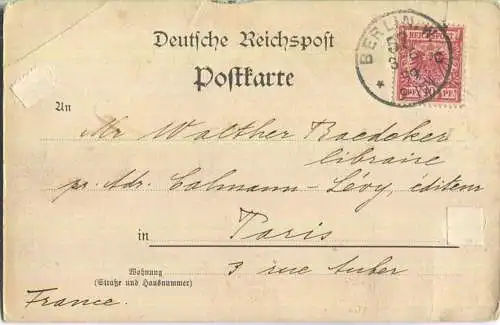 Deutsche Reichspost
Postkarte
BERLIN W
REICHSPOST
10 PF
An
Mr Walther Baedeker
libraire
pr. Adr. Calmann-Lévy, éditeur
in Paris
Wohnung
(Straße und Hausnummer)
3 rue Auber
France.